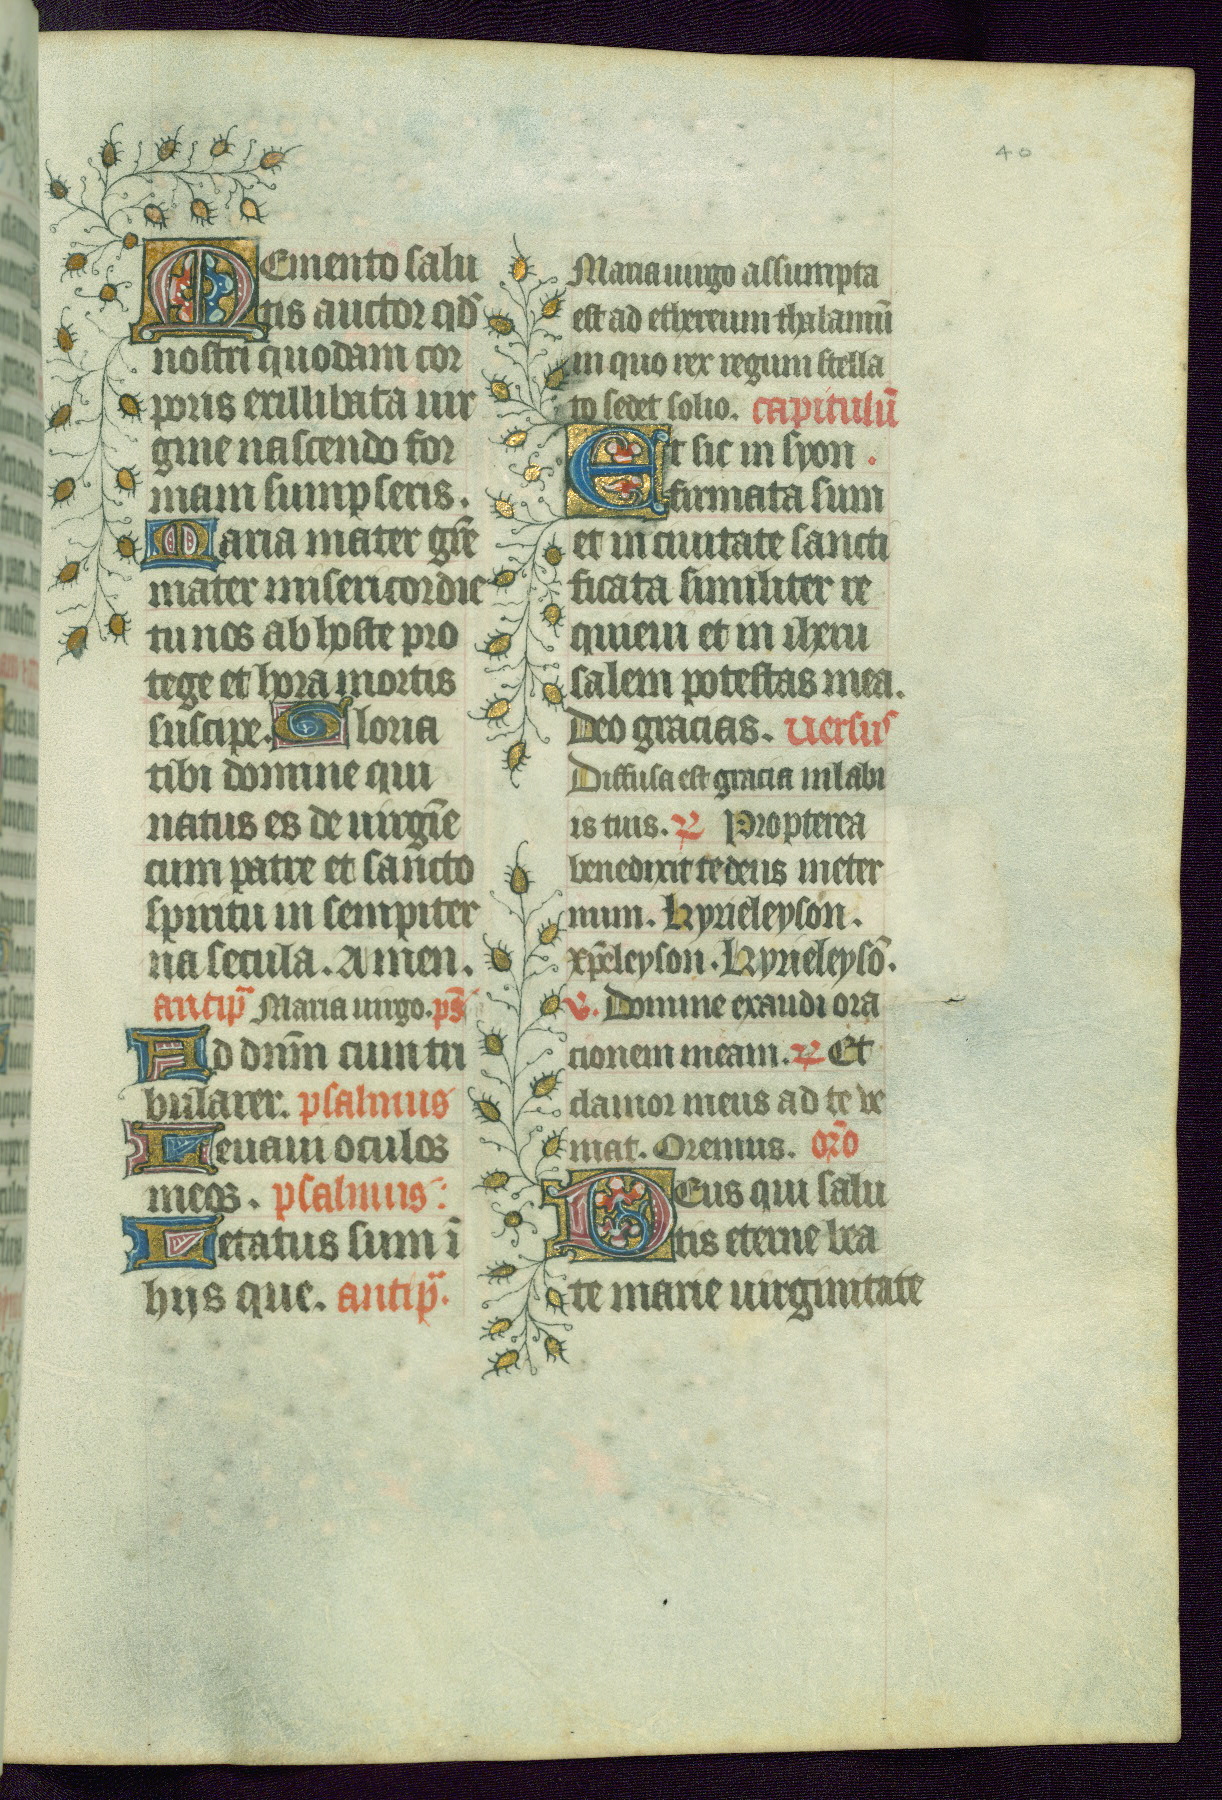 40
Memento salu
tis auctor qd̄
nostri quodam cor
poris exillibata uir
gine nascendo for
mam sumpseris.
Maria mater grē
mater misericordie
tu nos ab hoste pro
tege et hora mortis
suscipe. Gloria
tibi domine qui
natus es de uirgīe
cum patre et sancto
spiritu in sempiter
na secula. Amen.
antip̄ Maria uirgo. ps̄
Ad dn̄m cum tri
bularer. psalmus
Leuaui oculos
meos. psalmus
Letatus sum ī
hijs que. antip̄.
Maria uirgo assumpta
est ad ethereum thalamū
in quo rex regum stella
to sedet solio. capitulū
Et sic in syon
firmata sum
et in ciuitate sancti
ficata similiter re
quieui et in iheru
salem potestas mea.
Deo gracias. Uersus
Diffusa est gracia in labi
is tuis. ℟ Propterea
benedixit te deus ineter
num. Kyrieleyson.
xp̄eleyson. Kyrieleysō.
℣. Domine exaudi ora
tionem meam. ℟ Et
clamor meus ad te ve
niat. Oremus. or̄o
Deus qui salu
tis eterne bea
te marie uirginitate